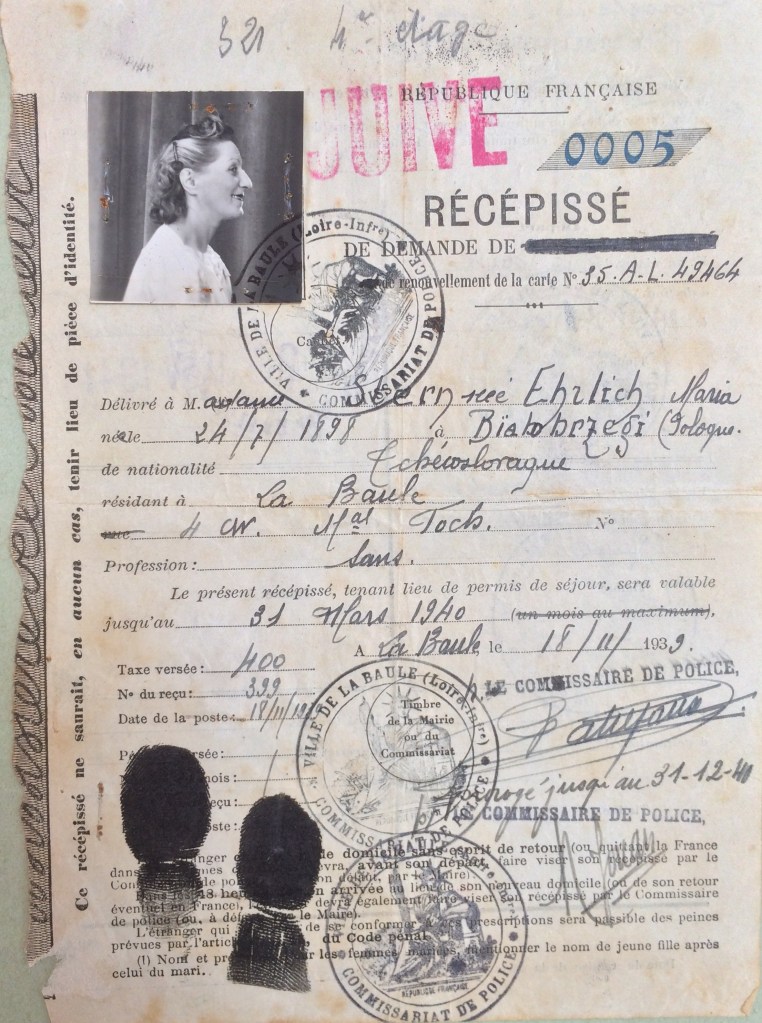 321 4e etage
JUIVE
RÉPUBLIQUE FRANÇAISE
0005
RÉCÉPISSÉ
DE DEMANDE DE
de renouvellement de la carte No 35.A-L. 49464
VILLE DE LA BAULE (Loire-Infre) * COMMISSARIAT DE POLICE *
Délivré à M. adame née Ehrlich Maria
née le 24/7/1898 à (Pologne.
de nationalité Tchécoslovaque
résidant à La Baule
rue 4 av. Mal Foch. No
Profession : Sans.
Le présent récépissé, tenant lieu de permis de séjour, sera valable
jusqu'au 31 Mars 1940 (un mois au maximum).
A La Baule, le 18/11/1939.
Taxe versée : 400
No du reçu : 399
Date de la poste : 18/11/19
LE COMMISSAIRE DE POLICE,
VILLE DE LA BAULE (Loire-Infre) * COMMISSARIAT DE POLICE *
Timbre
de la Mairie
ou du
Commissariat
Prorogé jusqu'au 31-12-40
LE COMMISSAIRE DE POLICE,
de domicile sans esprit de retour (ou quittant la France
avant son départ, faire viser son récépissé par le
par le Maire).
arrivée au lieu de son nouveau domicile (ou de son retour
éventuel en France), devra également faire viser son récépissé par le Commissaire
de police (ou, à le Maire).
L'étranger qui de se conformer prescriptions sera passible des peines
prévues par du Code pénal
(1) Nom et les femmes mariées, mentionner le nom de jeune fille après
celui du mari.
COMMISSARIAT DE POLICE *
RÉPUBLIQUE FRANÇAISE
Ce récépissé ne saurait, en aucun cas, tenir lieu de pièce d'identité.